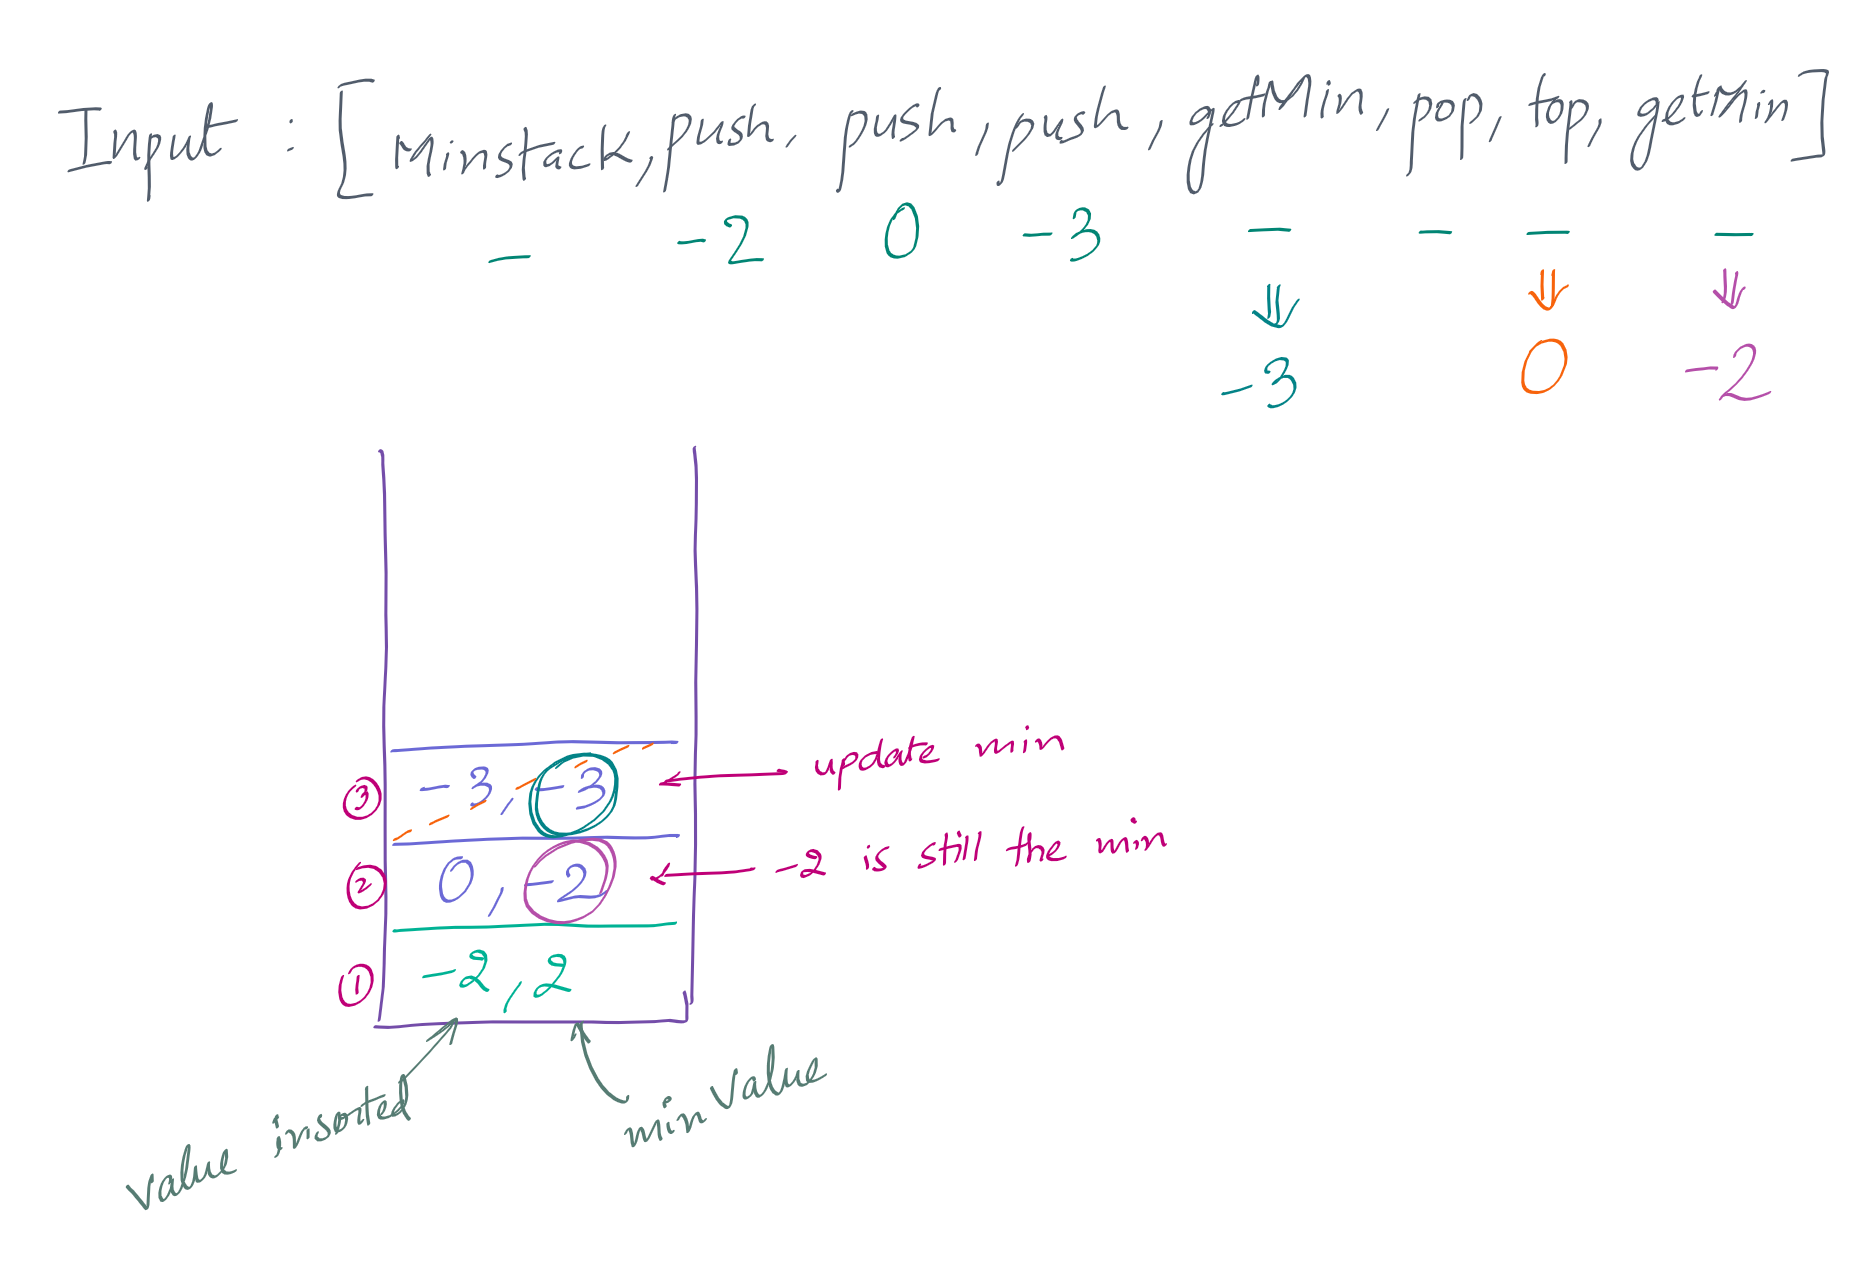 Input : [Minstack, push, push, push, getMin, pop, top, getMin]
- -2 0 -3 - - - -
⇓ ⇓ ⇓
-3 0 -2
③ -3, -3 ← update min
② 0, -2 ← -2 is still the min
① -2, 2
value inserted
min value